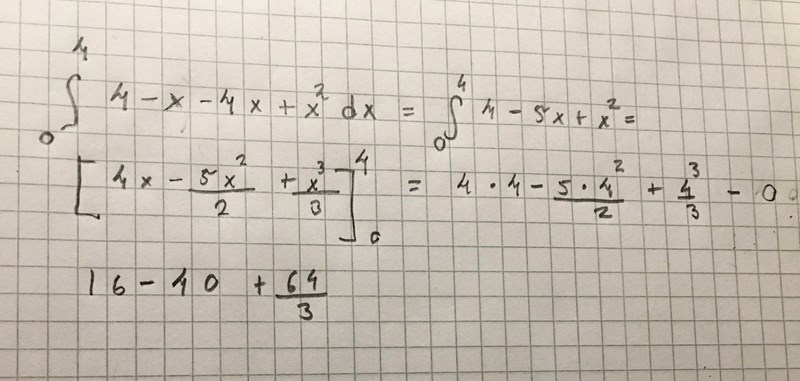 ∫₀⁴ 4 - x - 4x + x² dx = ∫₀⁴ 4 - 5x + x² =
[4x - 5x²/2 + x³/3]₀⁴ = 4·4 - 5·4²/2 + 4³/3 - 0
16 - 40 + 64/3